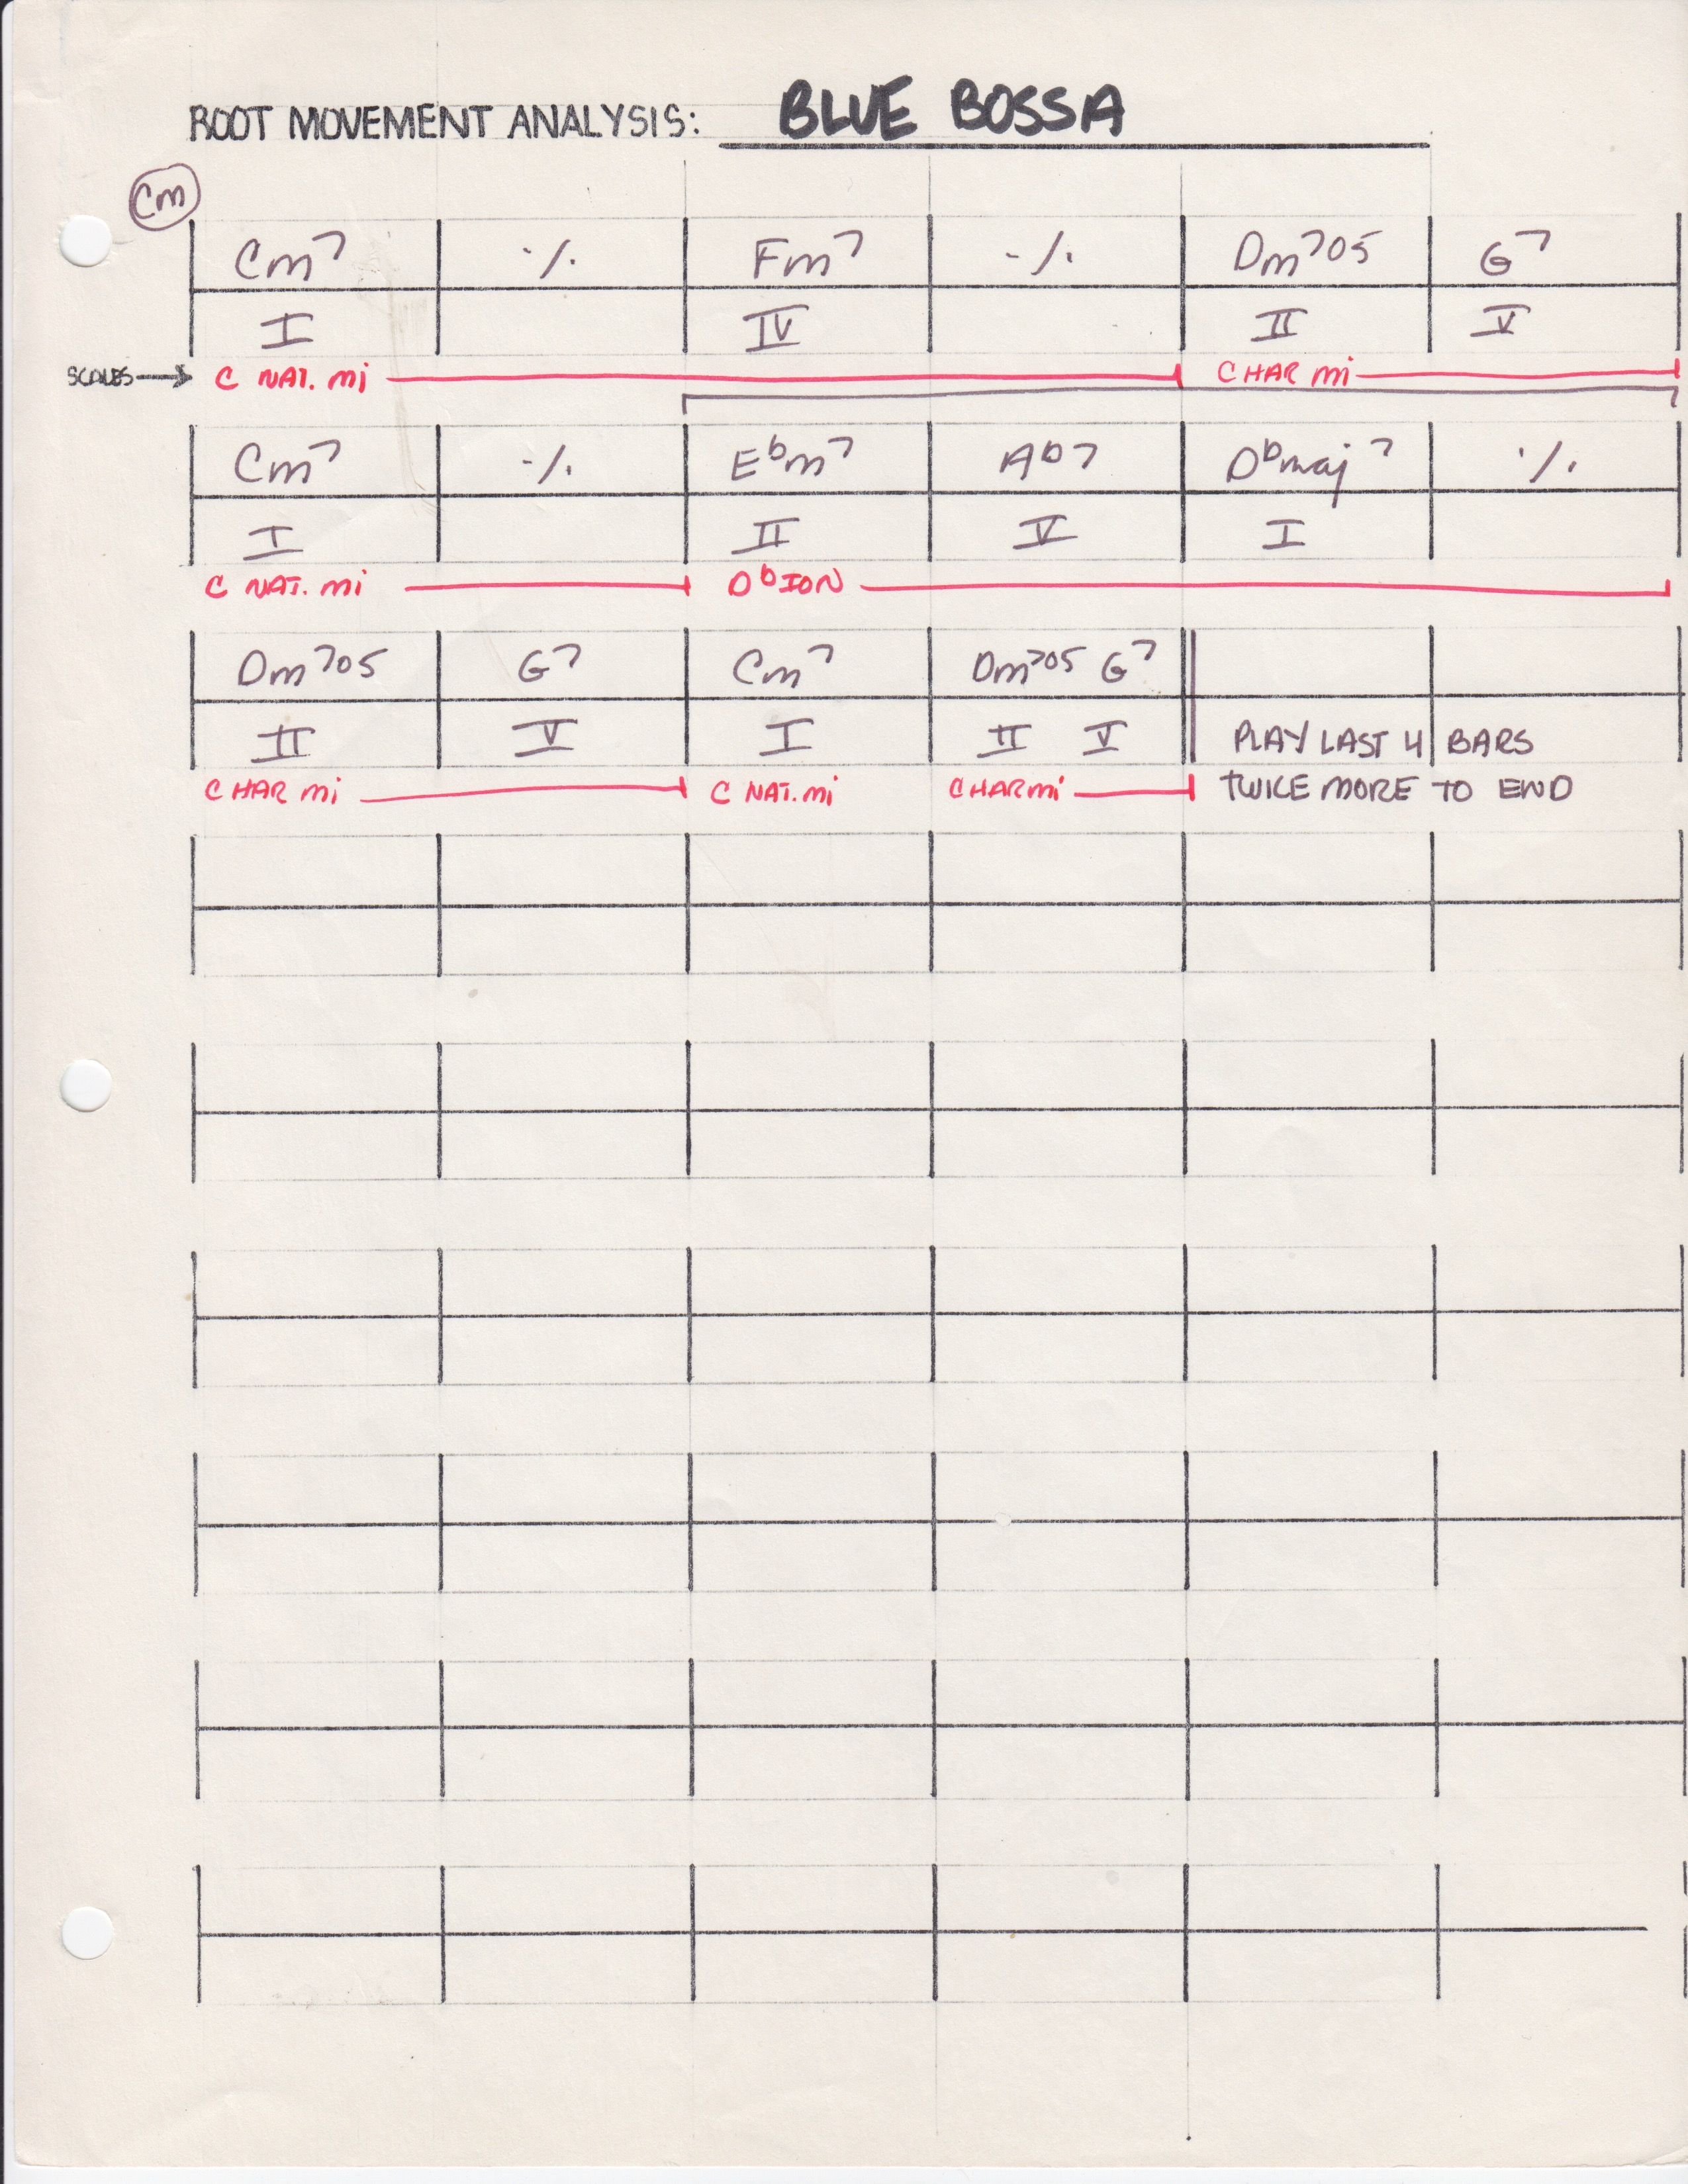 ROOT MOVEMENT ANALYSIS: BLUE BOSSA
Cm
Cm7 ٪ Fm7 ٪ Dm7o5 G7
I IV II V
SCALES → C NAT. mi C HAR mi
Cm7 ٪ Ebm7 Ab7 Dbmaj7 ٪
I II V I
C NAT. mi Db ION
Dm7o5 G7 Cm7 Dm7o5 G7
II V I II V PLAY LAST 4 BARS
C HAR mi C NAT. mi C HAR mi TWICE MORE TO END